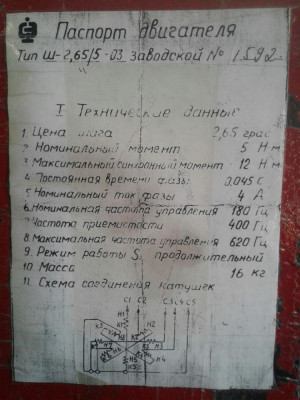 Паспорт двигателя
Тип Ш-2,65/5-03 Заводской № 1592
I Технические данные
1. Цена шага 2,65 град
2. Номинальный момент 5 Н м
3. Максимальный синхронный момент 12 Н м
4. Постоянная времени фазы 0.045 с
5. Номинальный ток фазы 4 А
6. Номинальная частота управления 180 Гц
7. Частота приемистости 400 Гц
8. Максимальная частота управления 620 Гц
9. Режим работы S1 продолжительный
10. Масса 16 кг
11. Схема соединения катушек
С1 С2 С3 С4 С5
Н1
К1
К3 Н2
К2
Н4
К5